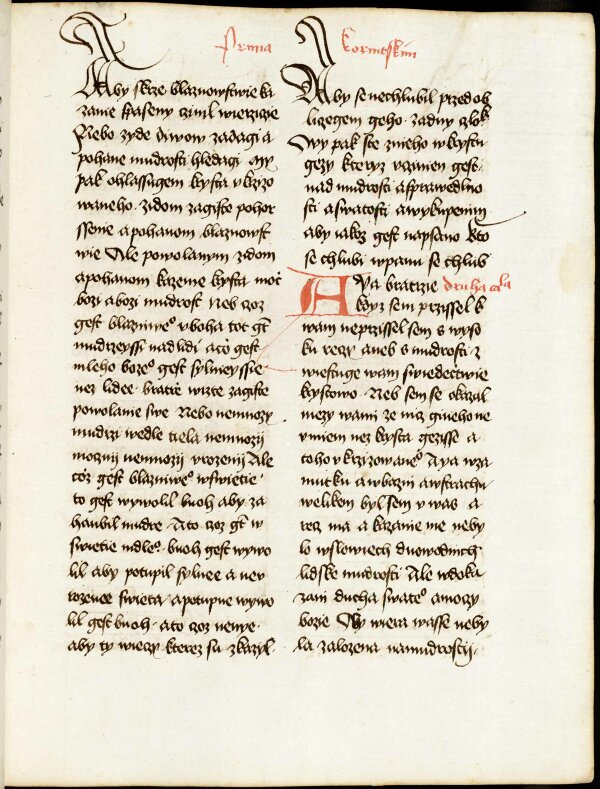 Prima Korintskim
Aby skrze blaznowstwie ka
zanie spaseny czinil wierzicie
Nebo zyde diwow zadagi a
pohane mudrosti hledagi My
pak ohlassugem krysta vkrzizo
waneho zidom zagiste pohor
ssenie a pohanom blaznowst
wie Ale powolanym zidom
a pohanom kazeme krysta moc
bozi a bozi mudrost Neb czoz
gest blazniwe° v boha tot gt
mudrzeyssi nad lidi a coz gest
mleho boze° gest sylneyssie
nez lidee bratie wizte zagiste
powolanie swe Nebo nemnozy
mudrzi wedle tiela nemnozij
mocznij nemnozij vrozenij Ale
coz gest blazniwe° w swietie
to gest wywolil buoh aby za
haubil mudre A to czoz gt w
swietie mdle° buoh gest wywo
lil aby potupil sylnee a nev
rozenee swieta a potupne wywo
lil gest buoh a to czoz nenye
aby ty wieczy kterez su zkazyl
Aby se nechlubil przed ob
liczegem geho zadny czlok
Wy pak ste z nieho w krystu
gezy kteryz vczinien gest
nad mudrosti a sprawedlno
sti a swatosti a wykupenim
aby iakoz gest napsano Kto
se chlubi w panu se chlub
A Ya bratrzie druha ca°la
kdyz sem przissel k
wam neprzissel sem s wyso
ku rzeczy aneb s mudrosti z
wiestuge wam swiedectwie
krystowo Neb sem se okazal
mezy wami ze nicz gineho ne
vmiem nez krysta gezisse a
toho vkrzizowane° A ya w za
mutku a w bazni a w strachu
welikem byl sem v was a
rzecz ma a kazanie me neby
lo w slowiech duowodnich
lidske mudrosti Ale w doka
zani ducha swate° a moczy
bozie Aby wiera wasse neby
la zalozena na mudrostij